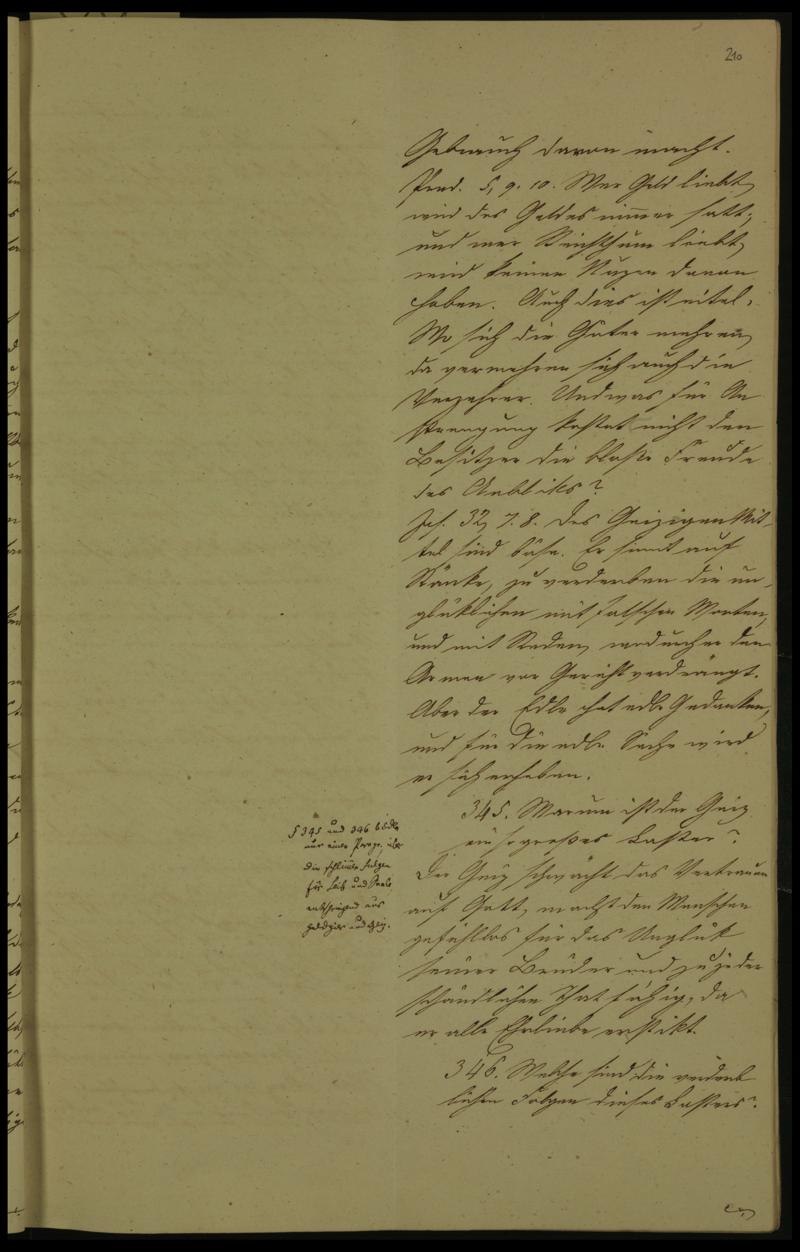 210
Gebrauch davon macht.
Pred. 5, 9. 10. Wer Geld liebt,
wird des Geldes nimmer satt;
und wer Reichthum liebt,
wird keinen Nuzen davon
haben. Auch dies ist eitel.
Wo sich die Güter mehren,
da vermehren sich auch die
Verzehrer. Und was für An
strengung kostet nicht den
Besitzer die bloße Freude
des Anbliks?
Jes. 32, 7. 8. Des Geizigen Mit-
tel sind böse. Er sinnt auf
Ränke, zu verderben die un-
glüklichen mit falschen Worten,
und mit Reden, wodurch er den
Armen vor Gericht verdrängt.
Aber der Edle hat edle Gedanken,
und für die edle Sache wird
er sich erheben.
345. Warum ist der Geiz
ein so großes Laster?
Der Geiz schwächt das Vertrauen
auf Gott, macht den Menschen
gefühllos für das Unglük
seiner Brüder und zu jeder
schändlichen That fähig, da
er alle Ehrliebe erstikt.
346. Welche sind die verderb
lichen Folgen dieses Lasters?
§ 345 und 346 bilde
nur eine Frage, über
die schlimme Folgen
für Leib und Seele,
entspringend aus
Geldgier und Geiz.